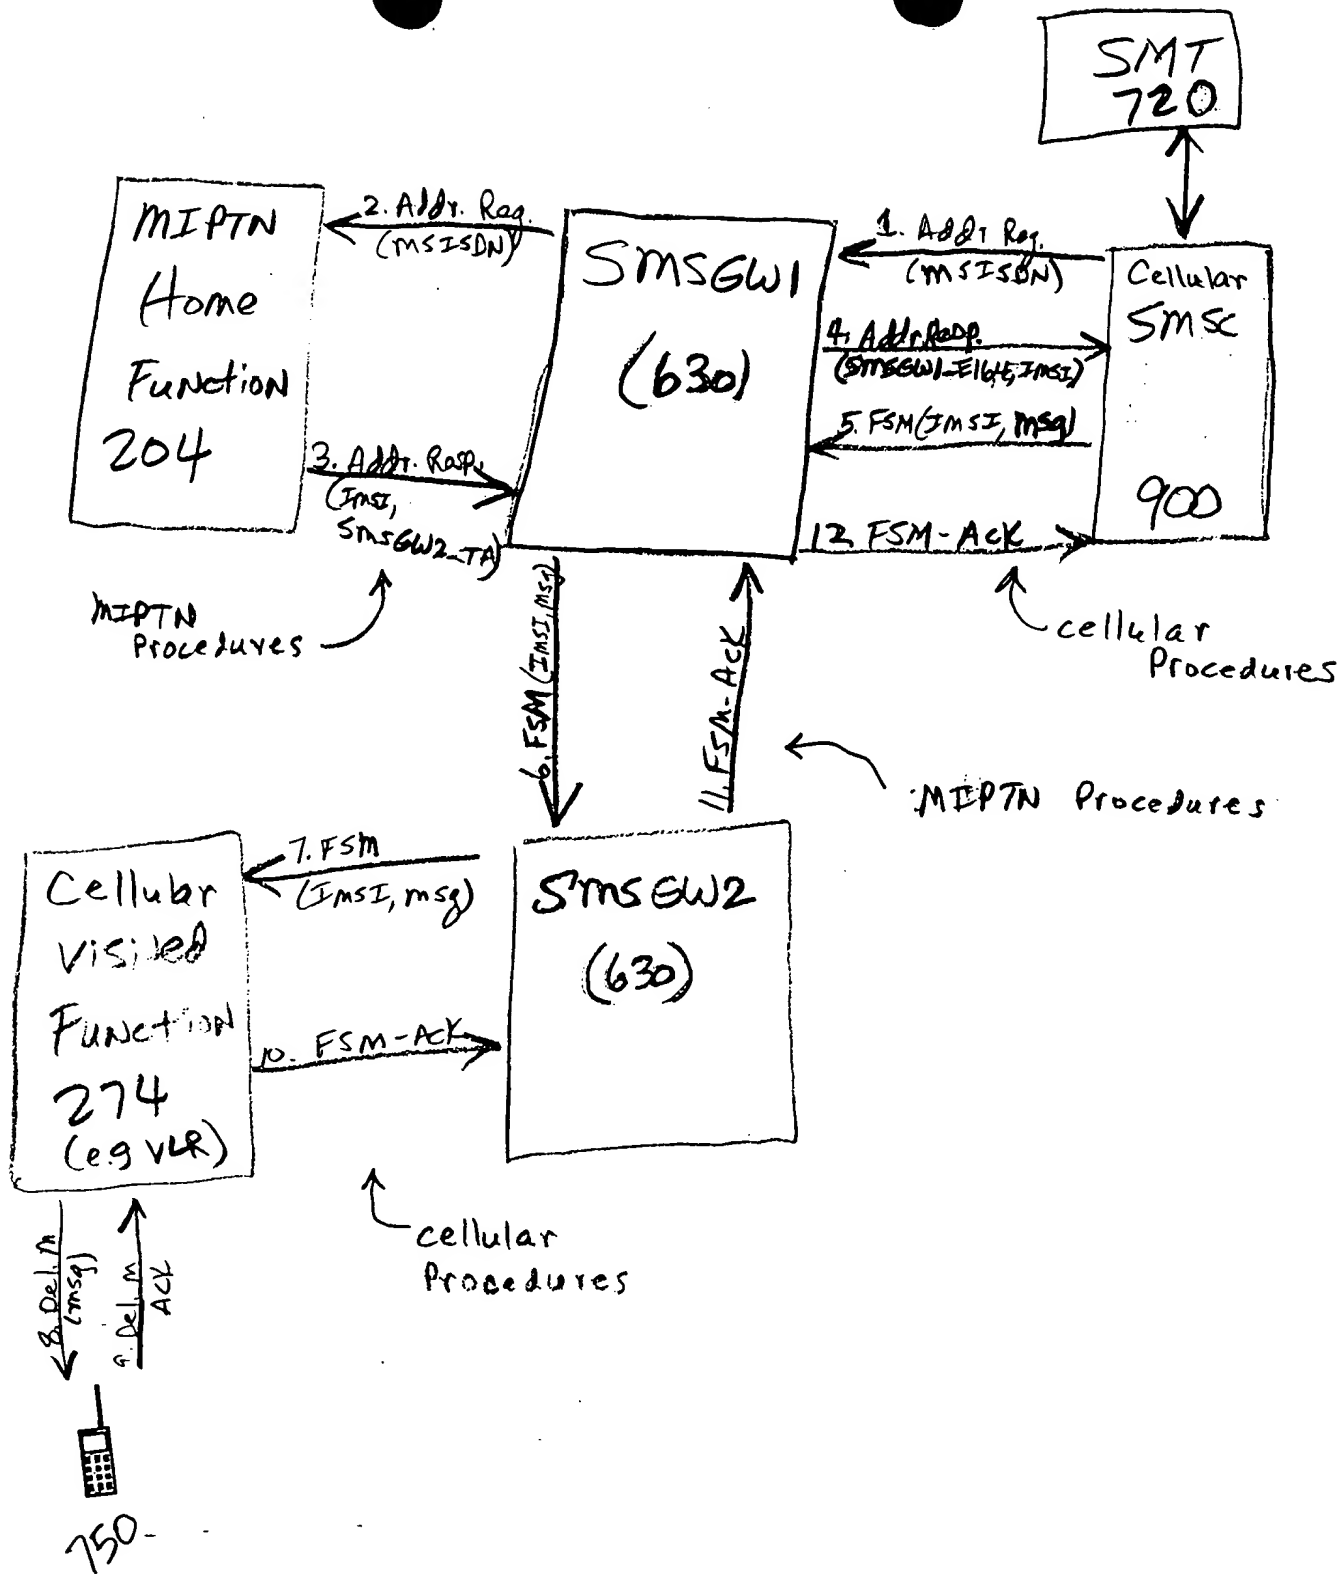 SMT
720
MIPTN
Home
Function
204
2. Addr. Req.
(MSISDN)
SMSGW1
(630)
1. Addr Req.
(MSISDN)
Cellular
SMSC
900
4. Addr. Resp.
(SMSGW1_E164, IMSI)
5. FSM(IMSI, msg)
3. Addr. Resp.
(IMSI,
SMSGW2_TA)
12. FSM-Ack
MIPTN
Procedures
cellular
Procedures
6. FSM (IMSI, msg)
11. FSM-Ack
MIPTN Procedures
7. FSM
(IMSI, msg)
Cellular
Visited
Function
274
(e.g VLR)
SMSGW2
(630)
10. FSM-Ack
cellular
Procedures
8. Del. M
(msg)
9. Del. M
ACK
750